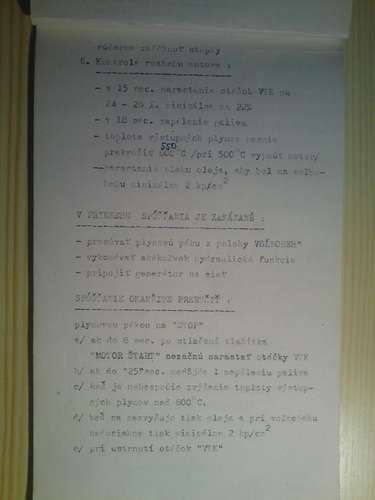 súčasne zažínať stopky
6. Kontrola rozbehu motora :
- v 15 sec. narastanie otáčok VTK na
24 - 26 %. minimálne na 22%
- v 18 sec. zapálenie paliva
- teplota výstupných plynov nesmie
550
prekročiť 600°C /pri 500°C vypnúť motor/
- narastanie tlaku oleja, aby bol na voľno-
behu minimálne 2 kp/cm²
V PRIEBEHU SPÚŠŤANIA JE ZAKÁZANÉ :
- presúvať plynovú páku z polohy VOĽNOBEH"
- vykonávať akékoľvek hydraulické funkcie
- pripojiť generátor na sieť
SPÚŠŤANIE OKAMŽITE PRERUŠIŤ :
plynovou pákou na "STOP"
a/ ak do 8 sec. po stlačení tlačítka
"MOTOR ŠTART" nezačnú narastať otáčky VTK
b/ ak do "25"sec. nedôjde k zapáleniu paliva
c/ keď je nebezpečie zvýšenia teploty výstup-
ných plynov nad 600°C.
d/ keď sa nezvyšuje tlak oleja a pri voľnobehu
nedosiahne tlak minimálne 2 kp/cm²
e/ pri ustrnutí otáčok "VTK"